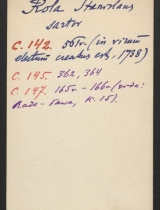 Kola Stanislaus
sartor
C. 142. 561v. (in virum
electum creatus est, 1738)
C. 145. 362, 364
C. 147. 165v - 166v (wieś:
Rads-Sawa, K. 15).